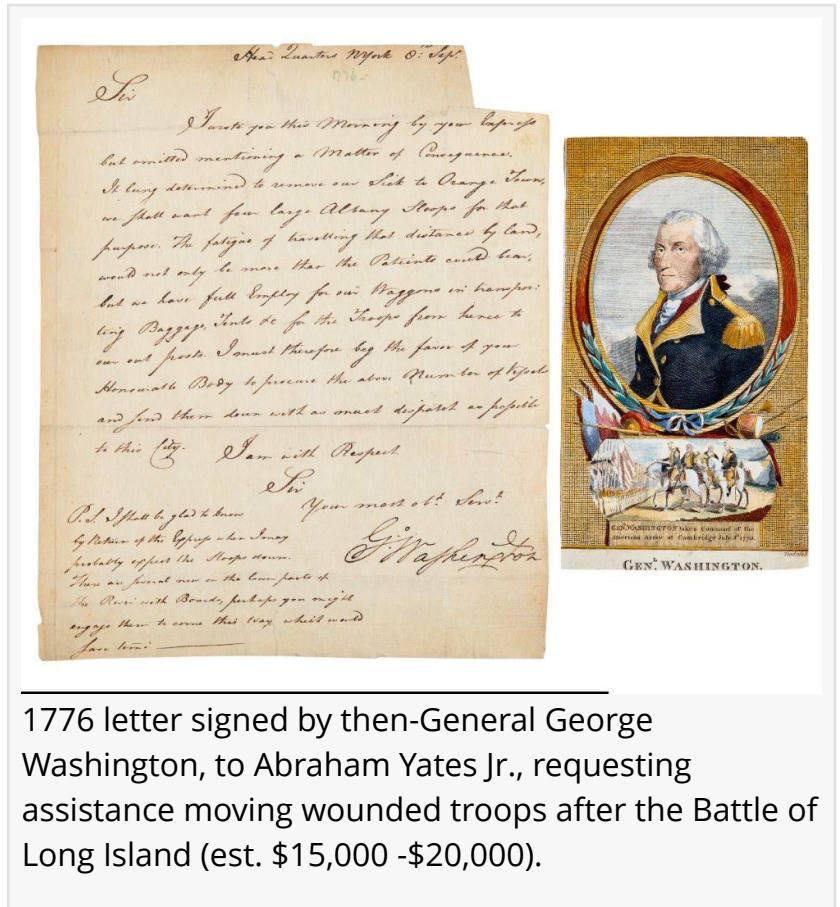 Head Quarters NYork 8th Sepr
1776
Sir
I wrote you this Morning by your Express
but omitted mentioning a Matter of Consequence.
It being determined to remove our Sick to Orange Town,
we shall want four large Albany Sloops for that
purpose. The fatigue of travelling that distance by land,
would not only be more than the Patients could bear,
but we have full Employ for our Waggons in transpor:
ting Baggage, Tents &c for the Troops from hence to
our out posts. I must therefore beg the favor of your
Honourable Body to procure the above Number of Vessels
and send them down with as much despatch as possible
to this City. I am with Respect
Sir
Your most obt. Servt.
Go Washington
P.S. I shall be glad to know
by Return of the Express when I may
probably expect the Sloops down.
There are several now in the lower parts of
the River with Boards, perhaps you might
engage them to come this way which would
save time
GENL. WASHINGTON takes Command of the
American Army at Cambridge July 3d 1775.
GENL. WASHINGTON.
1776 letter signed by then-General George
Washington, to Abraham Yates Jr., requesting
assistance moving wounded troops after the Battle of
Long Island (est. $15,000 -$20,000).